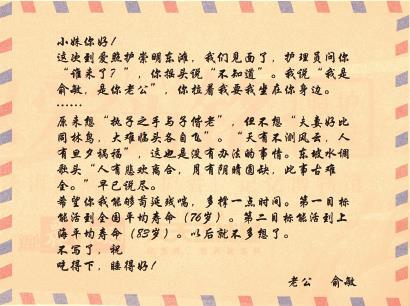 小妹你好！
这次到爱照护崇明东滩，我们见面了，护理员问你
“谁来了？”，你摇头说“不知道”。我说“我是
俞敏，是你老公”，你拉着我要我坐在你身边。
……
原来想“执子之手与子偕老”，但不想“夫妻好比
同林鸟，大难临头各自飞”。“天有不测风云，人
有旦夕祸福”，这也是没有办法的事情。东坡水调
歌头“人有悲欢离合，月有阴晴圆缺，此事古难
全。”早已说尽。
希望你我能够苟延残喘，多撑一点时间。第一目标
能活到全国平均寿命（76岁）。第二目标能活到上
海平均寿命（83岁）。以后就不多想了。
不写了，祝
吃得下，睡得好！
老公 俞敏